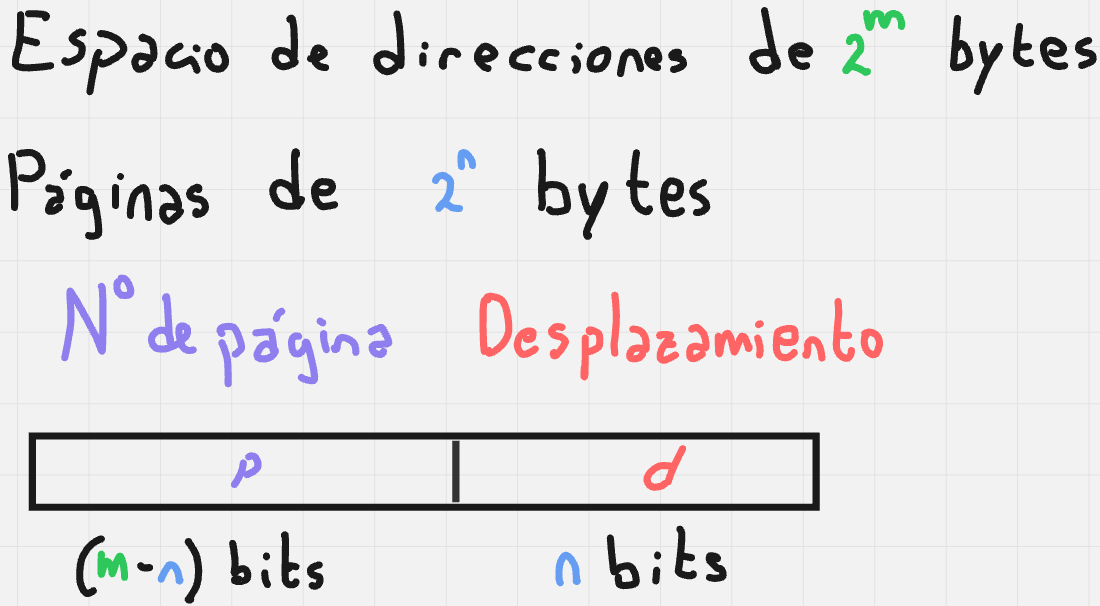 Espacio de direcciones de 2^m bytes
Páginas de 2^n bytes
Nº de página Desplazamiento
p d
(m-n) bits n bits